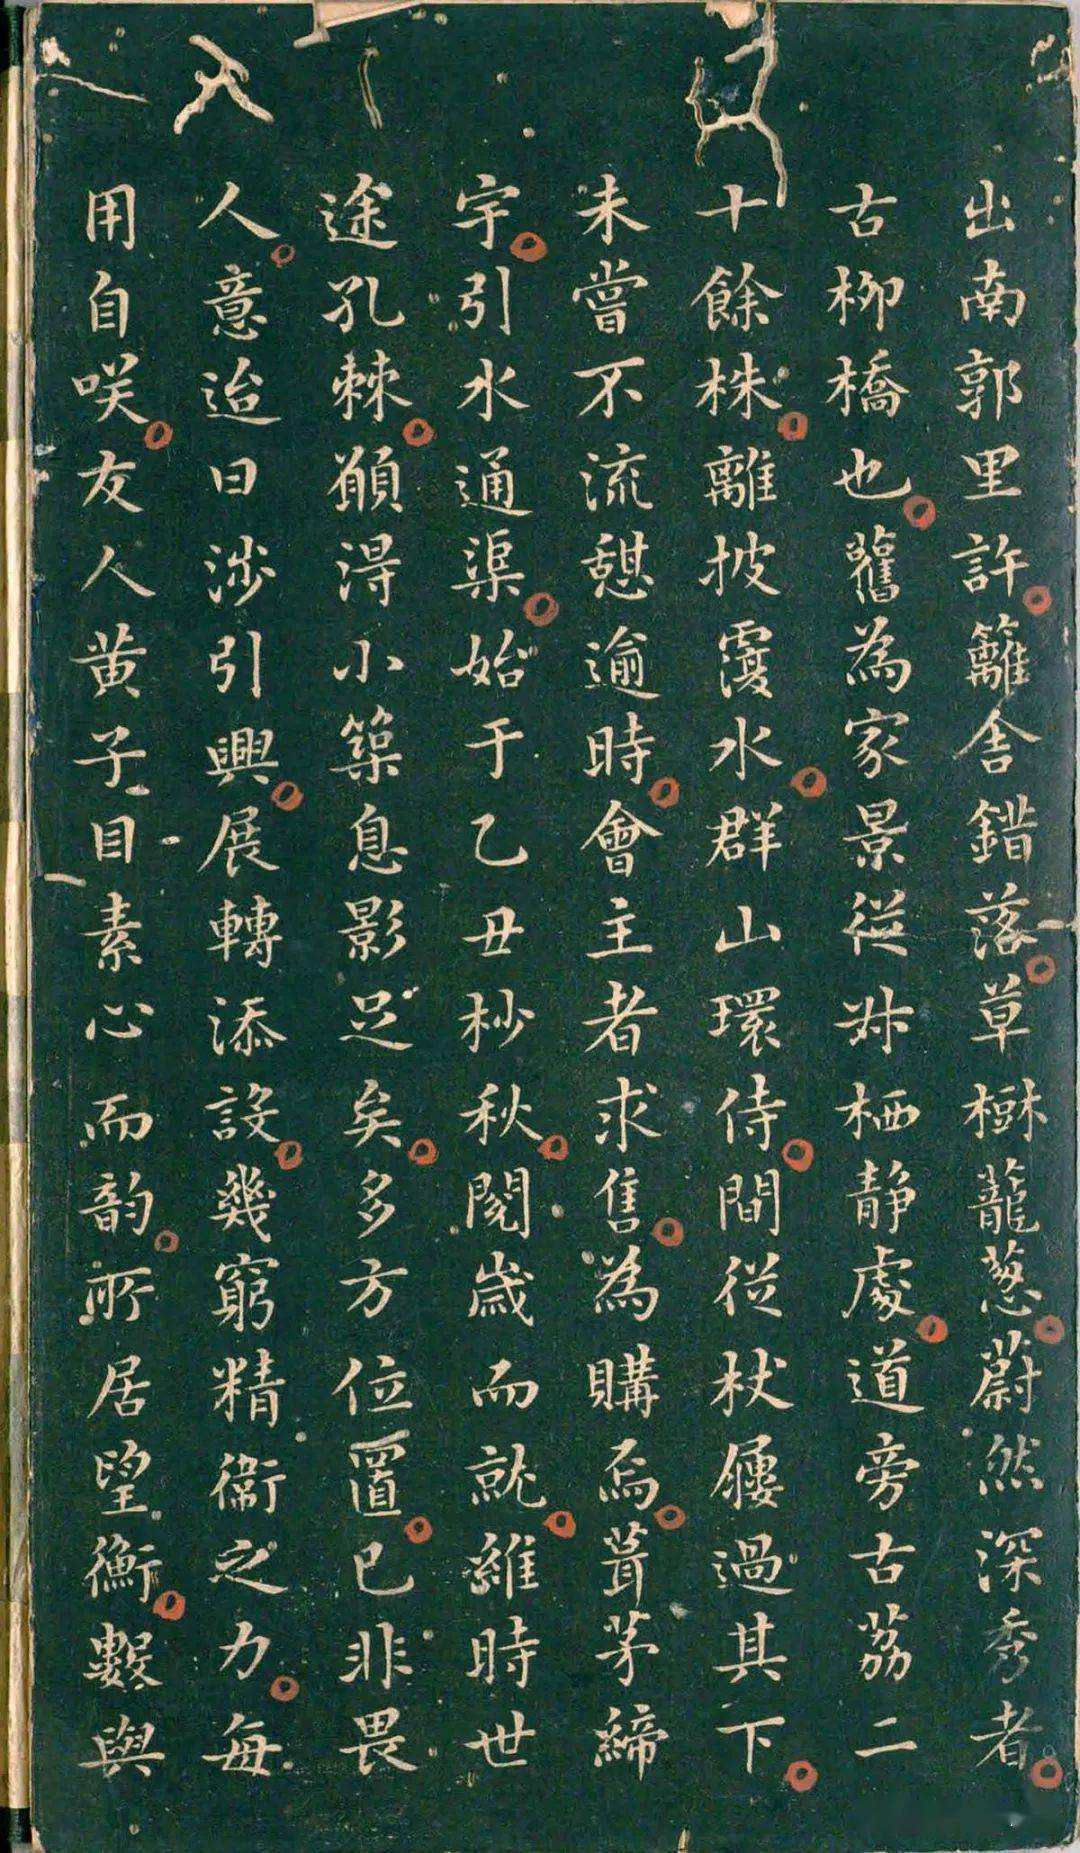 出南郭里許籬舍錯落草樹蘢蔥蔚然深秀者
古柳橋也舊為家景從㪽栖靜處道旁古荔二
十餘株離披覆水群山環侍間從杖屨過其下
未嘗不流憩逾時會主者求售為購焉葺茅締
宇引水通渠始于乙丑杪秋閱歲而就維時世
途孔棘願得小築息影足矣多方位置已非畏
人意迨日涉引興展轉添設幾窮精衞之力每
用自咲友人黃子目素心而韵所居望衡數與